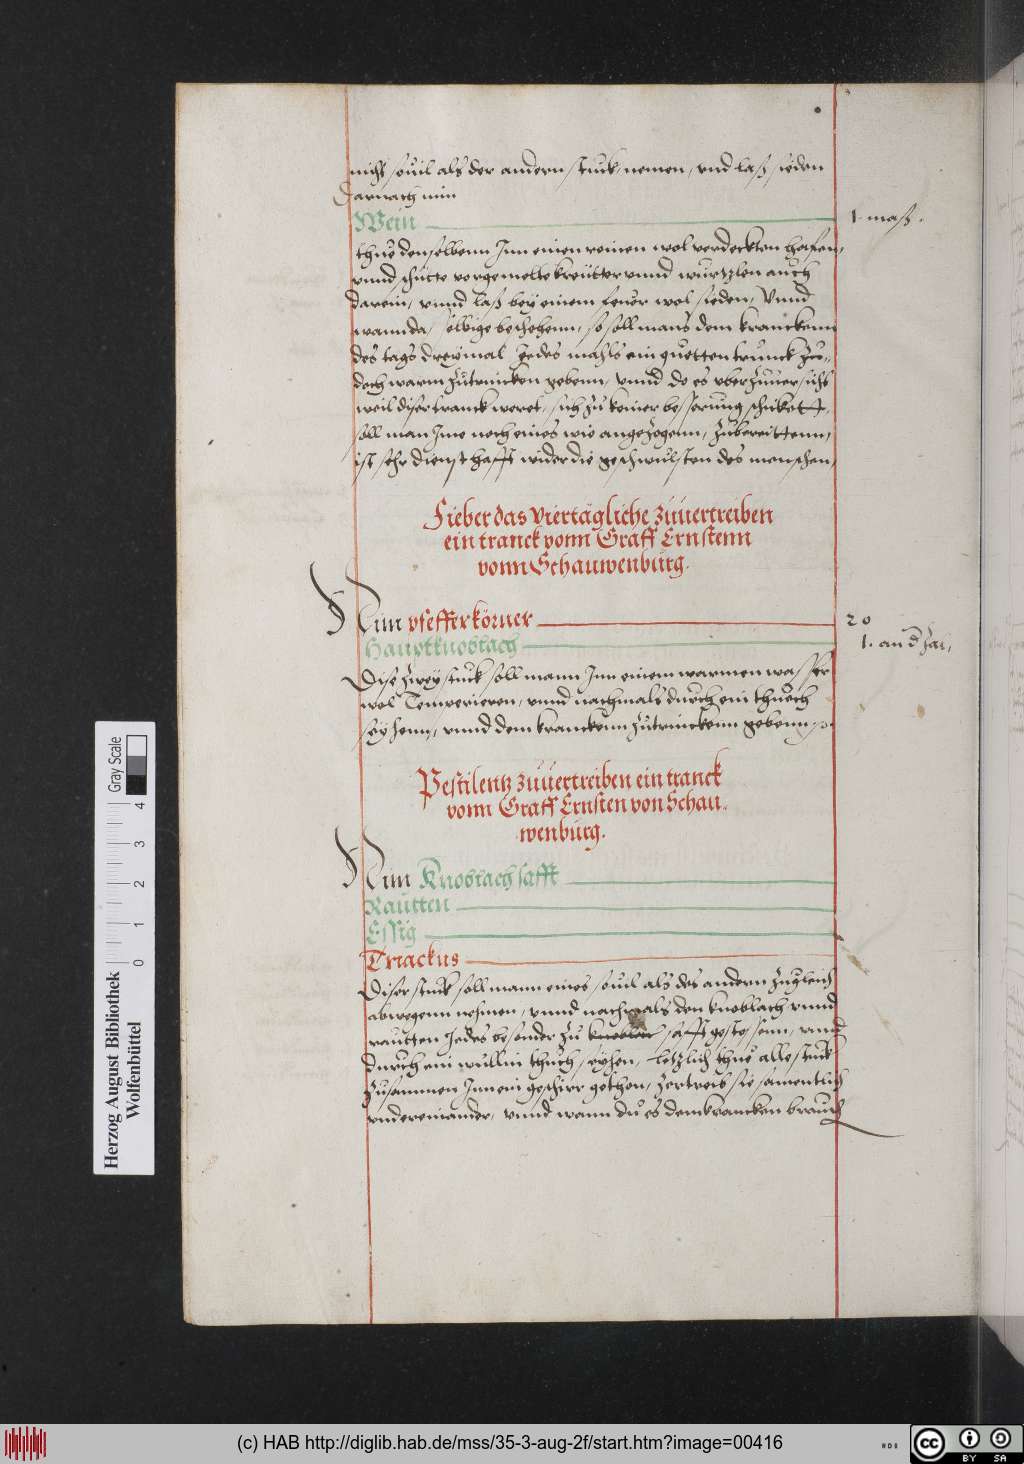 nicht souil als der andern stuck, nemen, vnd laß sieden
Darnach nim
Wein 1. maß.
thue denselbenn Inn einen reinen wol verdeckten hafen,
vnnd schütte vorgemelte kreütter vnnd wurtzlen auch
darein, vnnd laß bey einem feuer wol sieden, Vnnd
wann da, selbige beschehenn, so soll mans dem kranckenn
des tags dreymal Jedes mahls ein guetten trunck
doch warm zutrincken gebenn, vnnd do es vber
weil diser tranck weret, sich zu keiner besserung schicket,
soll man Ime noch eines wie angezogenn, zubereittenn,
ist sehr diensthafft wider die geschwulsten des menschen,
Fieber das viertägliche zuuertreiben
ein tranck vonn Graff Ernstenn
vonn Schauwenburg.
Nim pfefferkörner 20
Hauptknoblach 1. an d zal,
Dise zwey stuck soll mann Inn einem warmen wasser
wol Temperieren, vnnd nachmals durch ein thuech
seyhenn, vnnd dem kranckenn zutrinckenn gebenn
Pestilentz zuuertreiben ein tranck
vonn Graff Ernsten von Schau-
wenburg.
Nim Knoblach safft
Rautten
Essig
Triackus
Diser stuck soll mann eines souil als des andern zugleich
abwegenn nehmen, vnnd nachmals den knoblach vnnd
rautten Jedes besonder zu safft gestossenn, vnnd
durch ein wullin thuch seyhen, letzlich thue alle stuck
zusammen Inn ein geschirr gethon, zertreib sie samentlich
vndereinander, vnnd wann du es dem krancken brauch
Herzog August Bibliothek
Wolfenbüttel
0 1 2 3 4
Gray Scale
(c) HAB http://diglib.hab.de/mss/35-3-aug-2f/start.htm?image=00416
cc BY SA